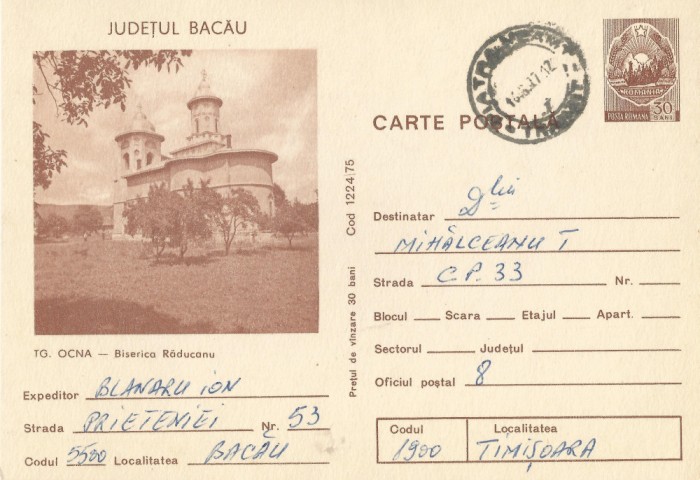 JUDEȚUL BACĂU
TG. OCNA — Biserica Răducanu
Expeditor BLANARU ION
Strada PRIETENIEI Nr. 53
Codul 5500 Localitatea BACĂU
Prețul de vînzare 30 bani Cod 1224/75
ROMANIA
POSTA ROMANA 30 BANI
CARTE POȘTALĂ
Destinatar Dlui
MIHĂLCEANU T
Strada C.P. 33 Nr.
Blocul Scara Etajul Apart.
Sectorul Județul
Oficiul poștal 8
Codul Localitatea
1900 TIMIȘOARA